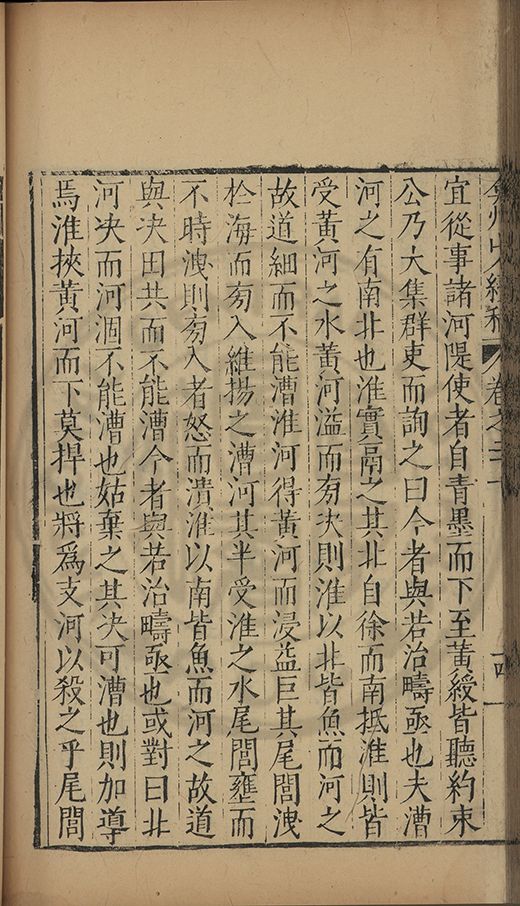 弇州山人續稿 卷之三十 十四
宜從事諸河隄使者自青墨而下至黃綬皆聽約束
公乃大集群吏而詢之曰今者與若治疇亟也夫漕
河之有南北也淮實鬲之其北自徐而南抵淮則皆
受黃河之水黃河溢而旁决則淮以北皆魚而河之
故道細而不能漕淮河得黃河而浸益巨其尾閭洩
於海而旁入維揚之漕河其半受淮之水尾閭壅而
不時洩則旁入者怒而潰淮以南皆魚而河之故道
與决田共而不能漕今者與若治疇亟也或對曰北
河决而河涸不能漕也姑棄之其决可漕也則加導
焉淮挾黃河而下莫捍也將爲支河以殺之乎尾閭